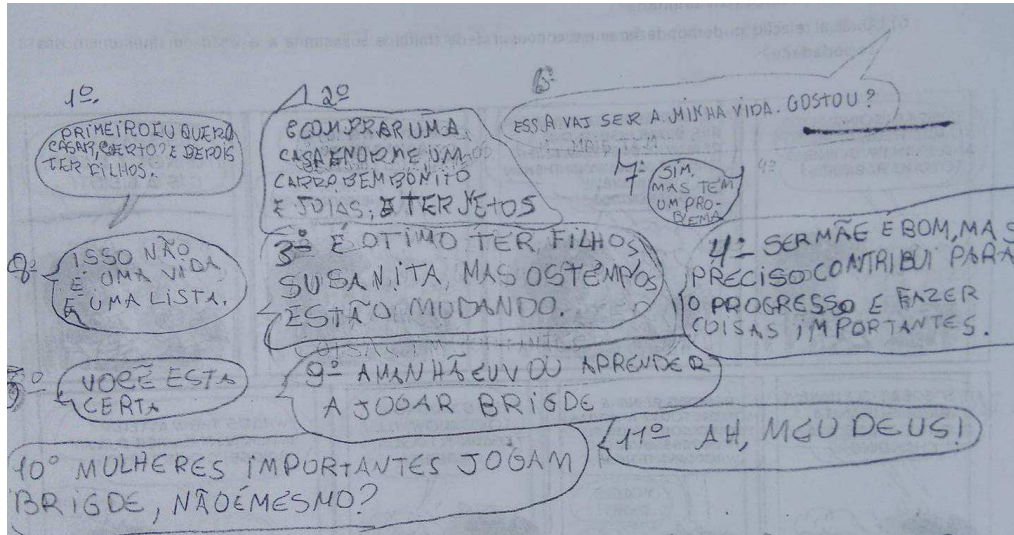 1º.
PRIMEIRO EU QUERO
CASAR, CERTO? E DEPOIS
TER FILHOS.
2º
E COMPRAR UMA
CASA ENORME UM
CARRO BEM BONITO
E JOIAS, E TER NETOS
6º
ESSA VAI SER A MINHA VIDA. GOSTOU?
7º
SIM,
MAS TEM
UM PRO-
BLEMA
4º
8º
ISSO NÃO
É UMA VIDA
É UMA LISTA.
3º É OTIMO TER FILHOS
SUSANITA, MAS OS TEMPOS
ESTÃO MUDANDO.
4º SER MÃE É BOM, MAS
PRECISO CONTRIBUI PARA
O PROGRESSO E FAZER
COISAS IMPORTANTES.
5º
VOCÊ ESTA
CERTA
9º AMANHÃ EU VOU APRENDER
A JOGAR BRIGDE
10º MULHERES IMPORTANTES JOGAM
BRIGDE, NÃO É MESMO?
11º AH, MEU DEUS!